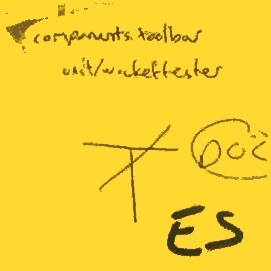 components.toolbar
unit/wickettester
T DOC
ES